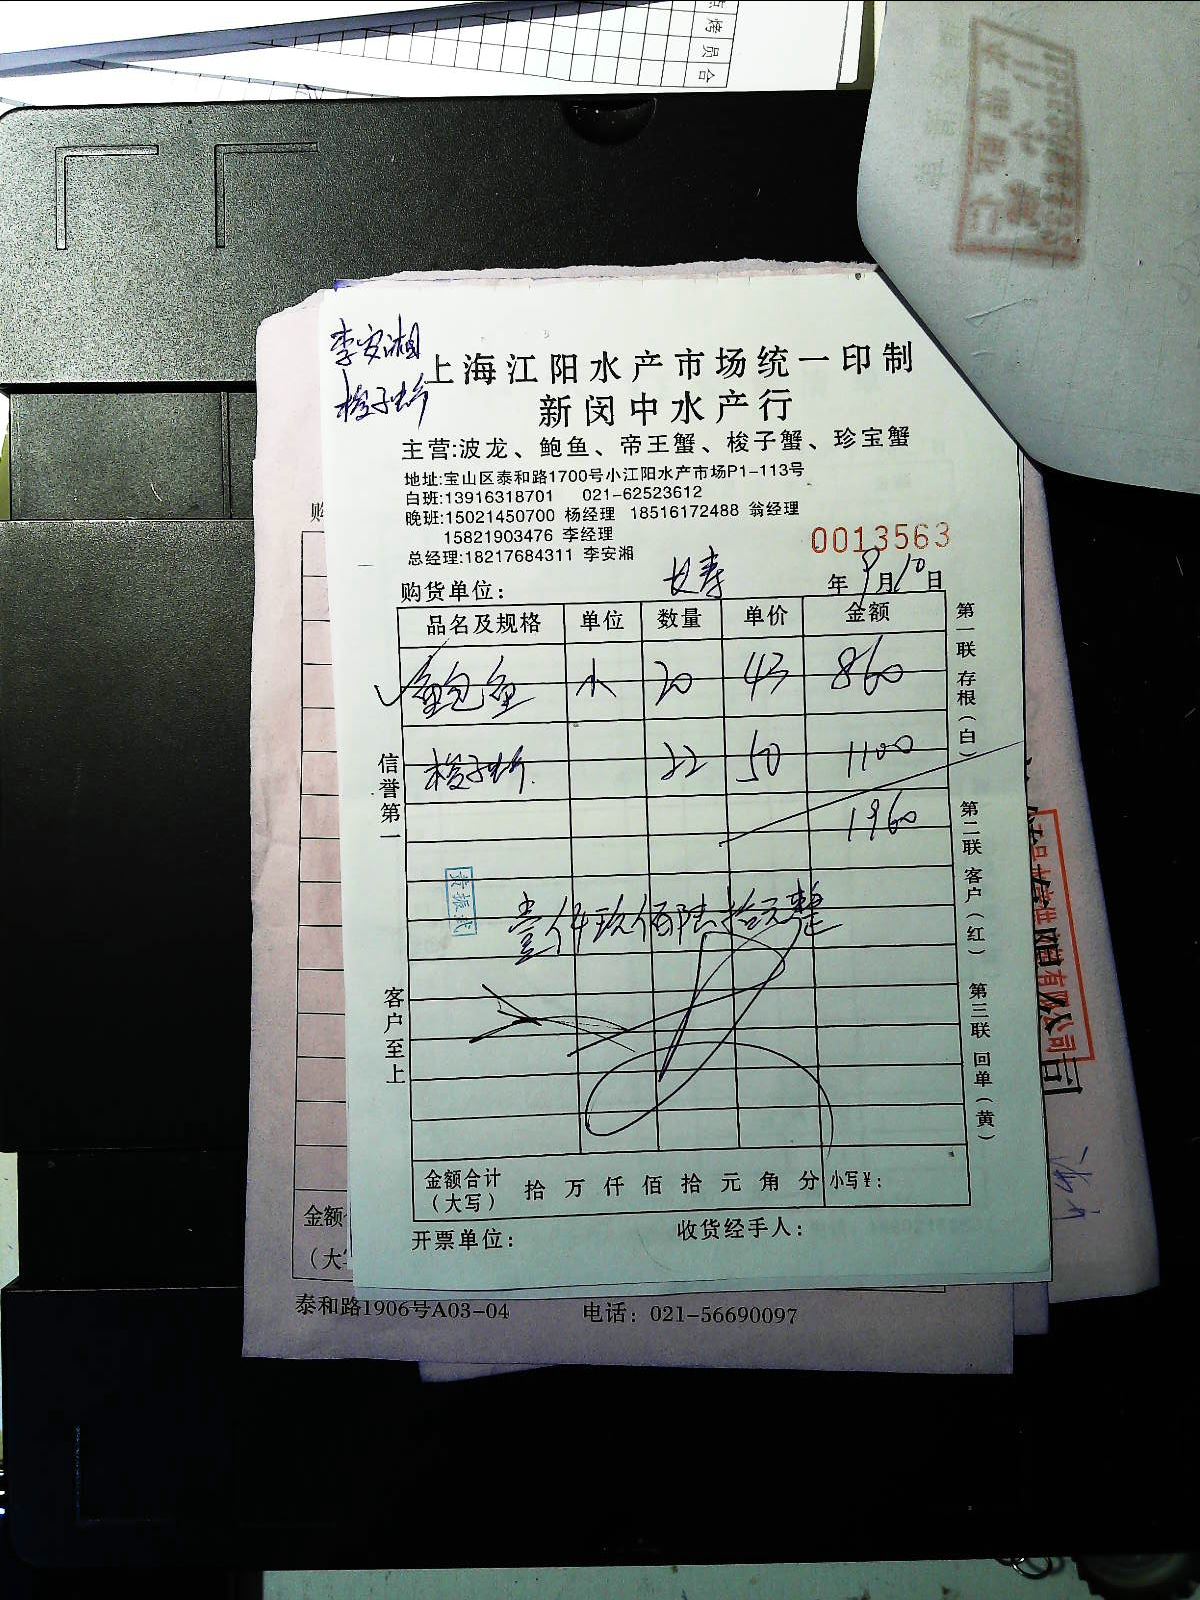 烤
员
合
李安湘
梭子蟹
上海江阳水产市场统一印制
新闵中水产行
主营:波龙、鲍鱼、帝王蟹、梭子蟹、珍宝蟹
地址:宝山区泰和路1700号小江阳水产市场P1-113号
白班:13916318701 021-62523612
晚班:15021450700 杨经理 18516172488 翁经理
15821903476 李经理
总经理:18217684311 李安湘
0013563
购货单位: 长寿 年9月10日
品名及规格 单位 数量 单价 金额
鲍鱼 20 43 860
梭子蟹 22 50 1100
1960
壹仟玖佰陆拾元整
黄振武
信誉第一
客户至上
第一联 存根(白)
第二联 客户(红)
第三联 回单(黄)
金额合计(大写) 拾 万 仟 佰 拾 元 角 分 小写¥:
开票单位: 收货经手人:
购
金额
(大
有限公司
司
泰和路1906号A03-04 电话: 021-56690097